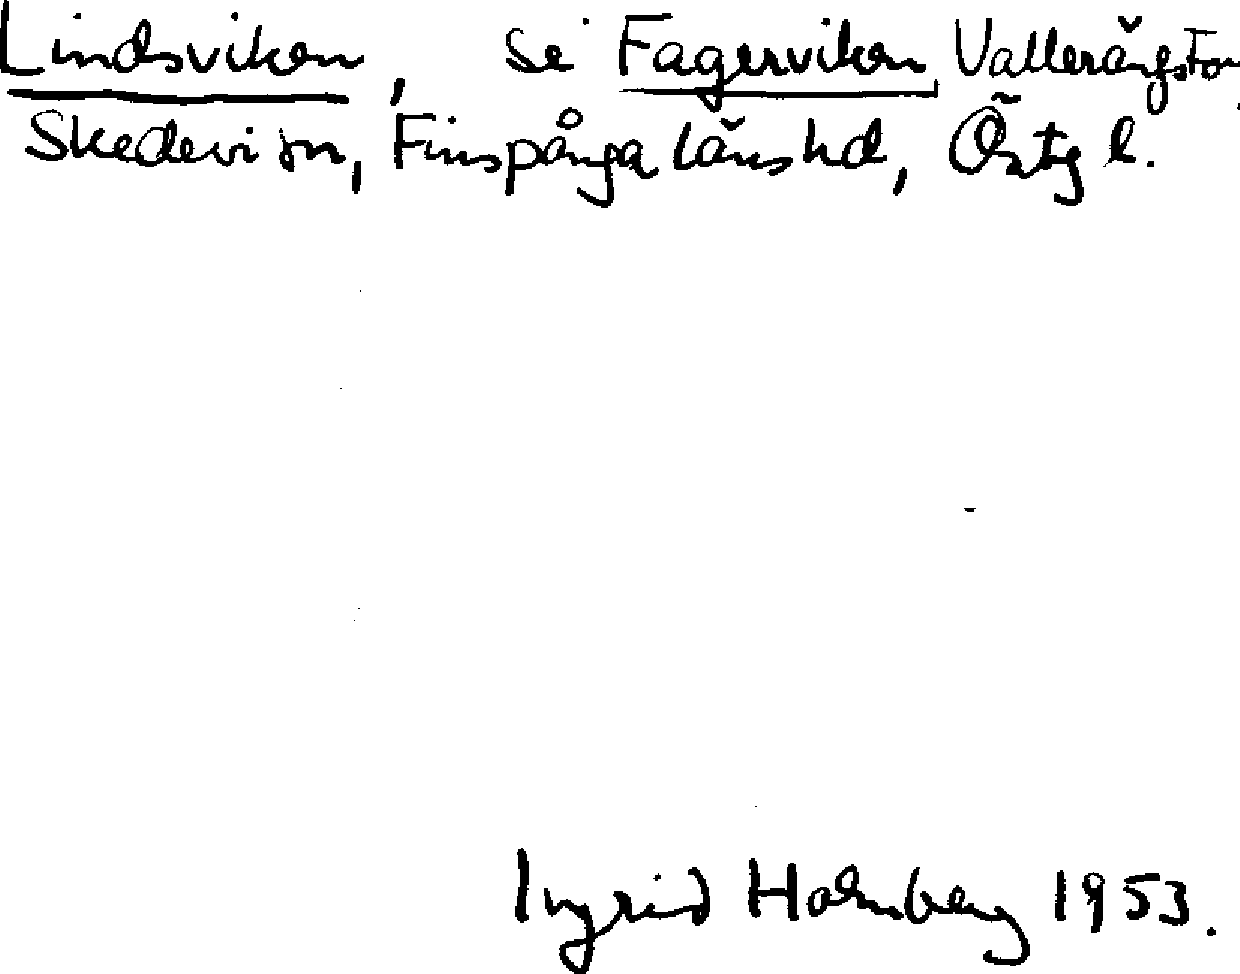 Lindsviken, se Fagerviken
Skedevi sn, Finspånga länshd, Östg l.
Ingrid Holmberg 1953.